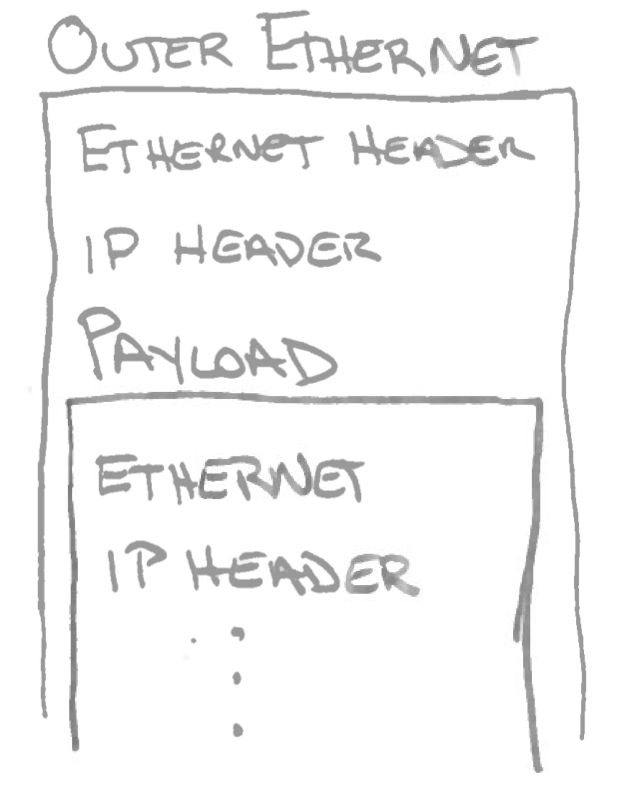 OUTER ETHERNET
ETHERNET HEADER
IP HEADER
PAYLOAD
ETHERNET
IP HEADER